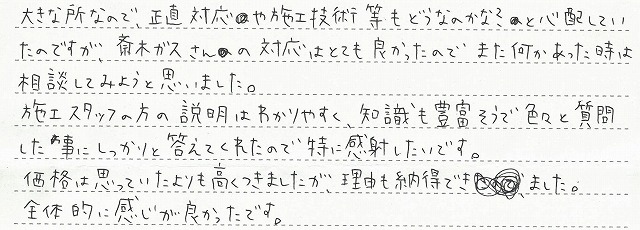 大きな所なので、正直対応や施工技術等もどうなのかなぁと心配してい
たのですが、斎木ガスさんの対応はとても良かったのでまた何かあった時は
相談してみようと思いました。
施工スタッフの方の説明はわかりやすく、知識も豊富そうで色々と質問
した事にしっかりと答えてくれたので特に感射したいです。
価格は思っていたよりも高くつきましたが、理由も納得できました。
全体的に感じが良かったです。